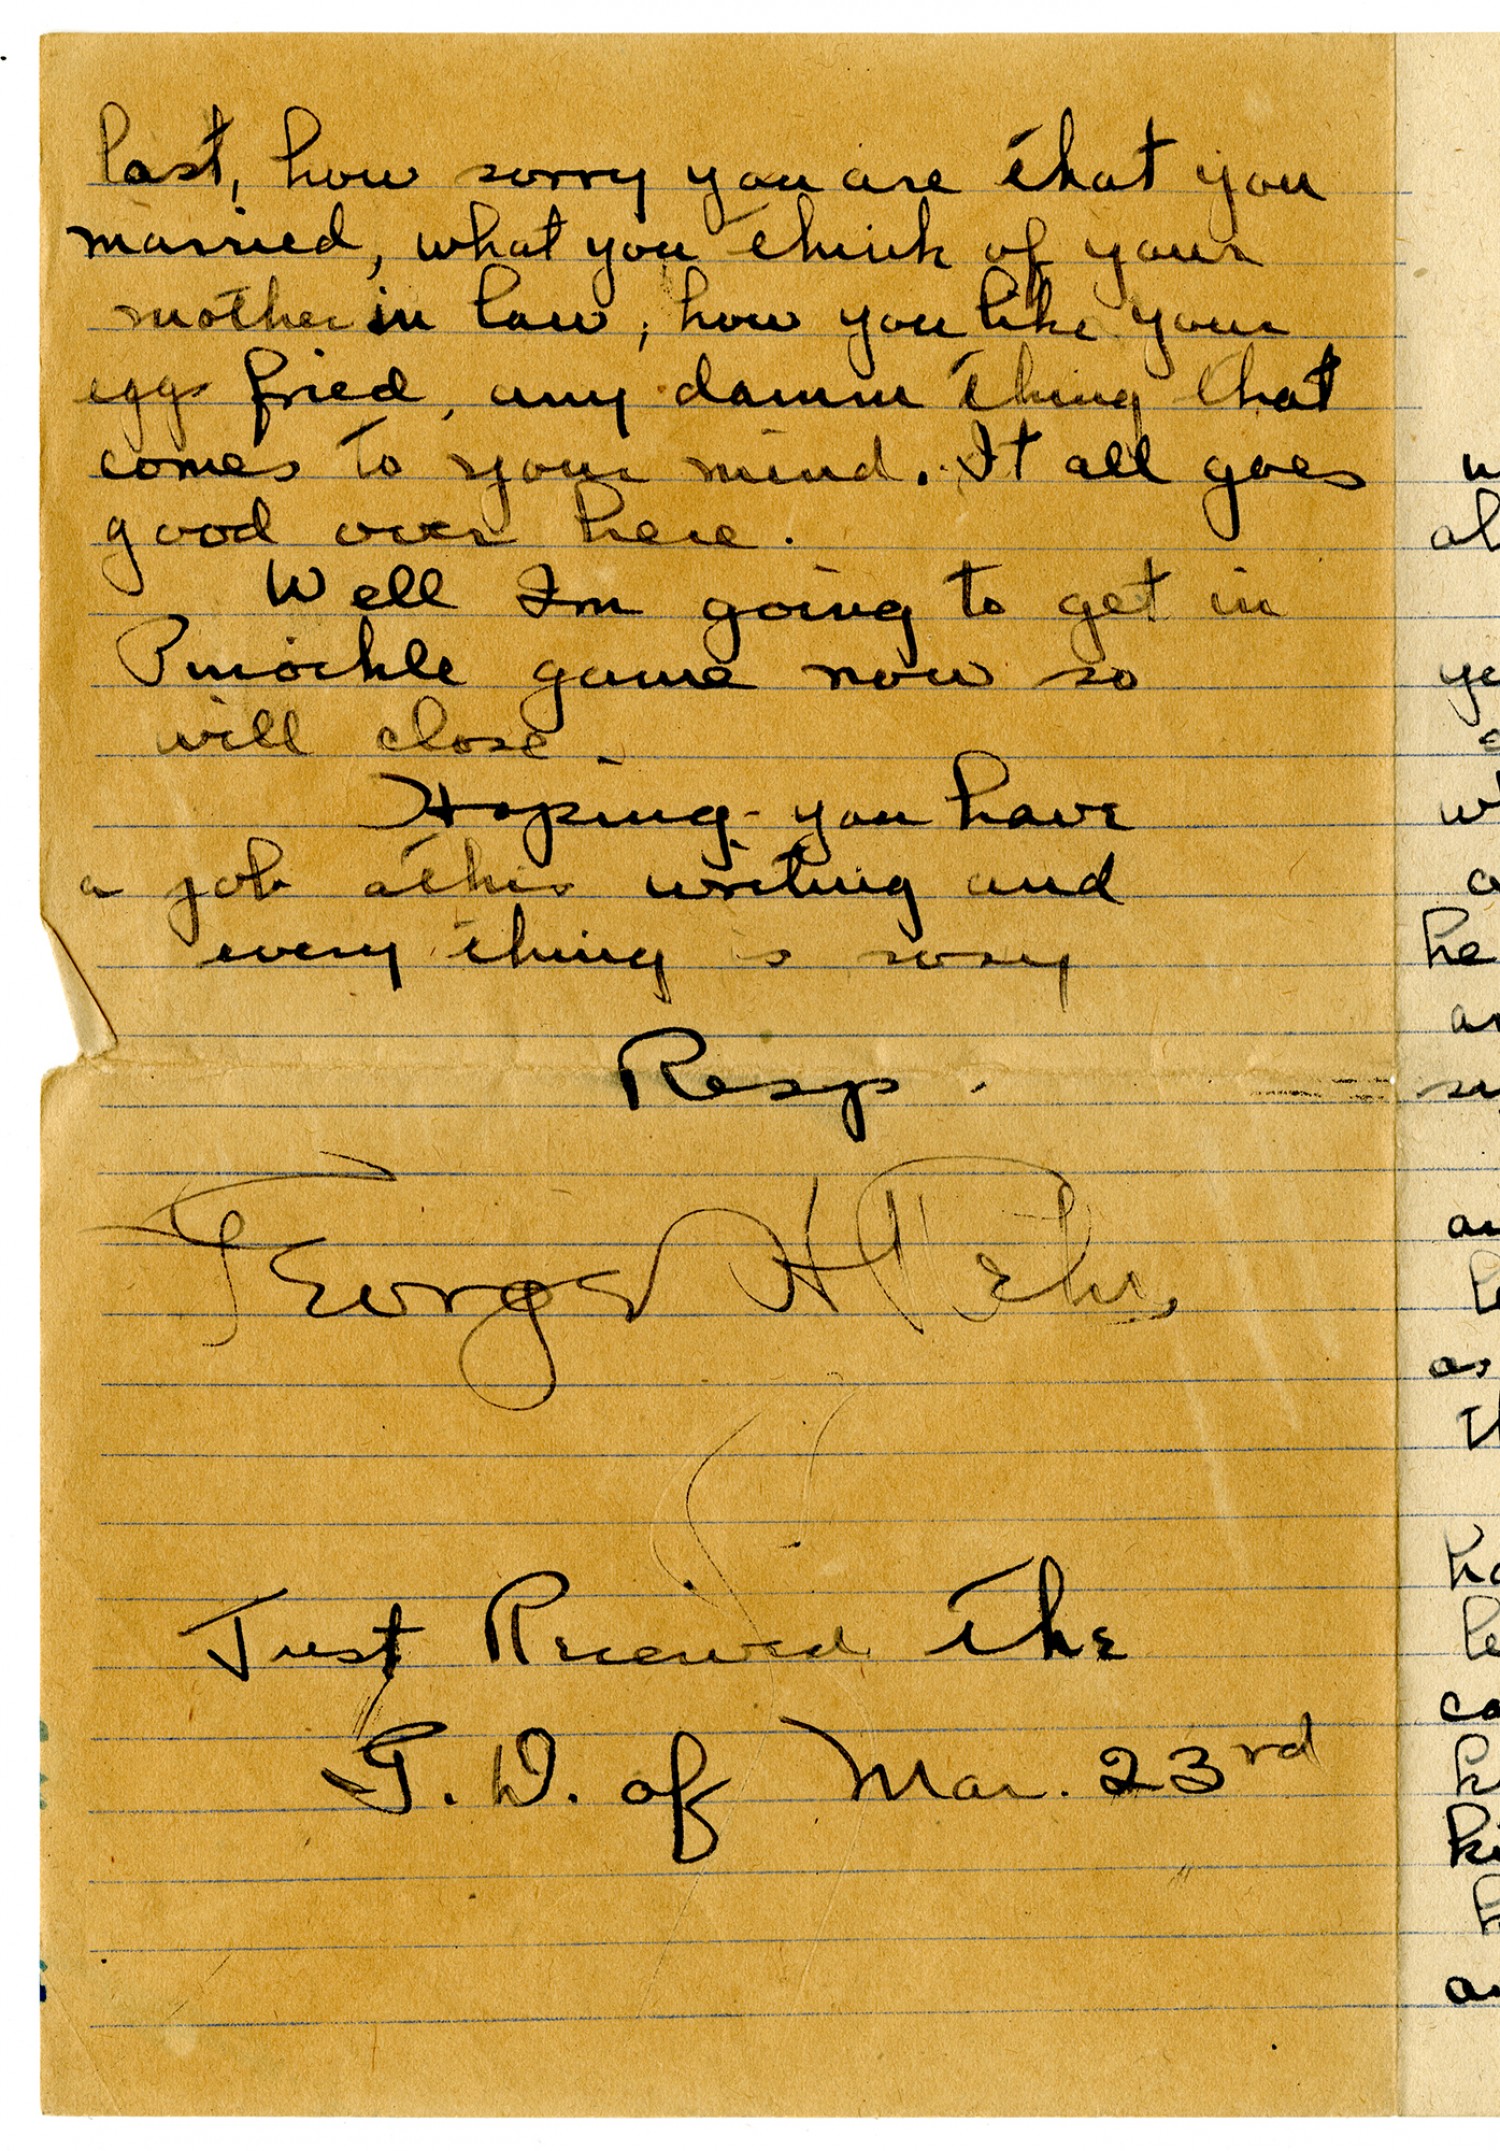 last, how sorry you are that you
married, what you think of your
mother in law, how you like your
eggs fried, any damm thing that
comes to your mind. It all goes
good over here.
Well Im going to get in
Pinochle game now so
will close.
Hoping you have
a job other writing and
every thing is rosy
Resp.
George H
Just Received the
G. D. of Mar. 23rd